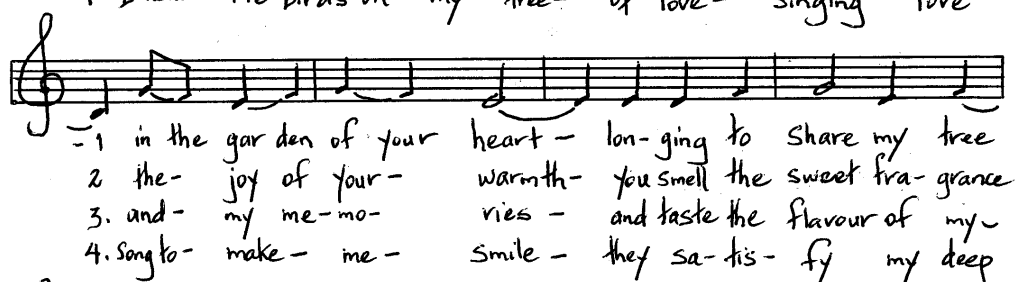 the birds on my tree- of love- singing love
-1 in the gar den of your heart- lon-ging to share my tree
2 the- joy of your- warmth- you smell the sweet fra-grance
3. and- my me-mo- ries- and taste the flavour of my-
4. Song to- make- me- smile- they sa-tis-fy my deep